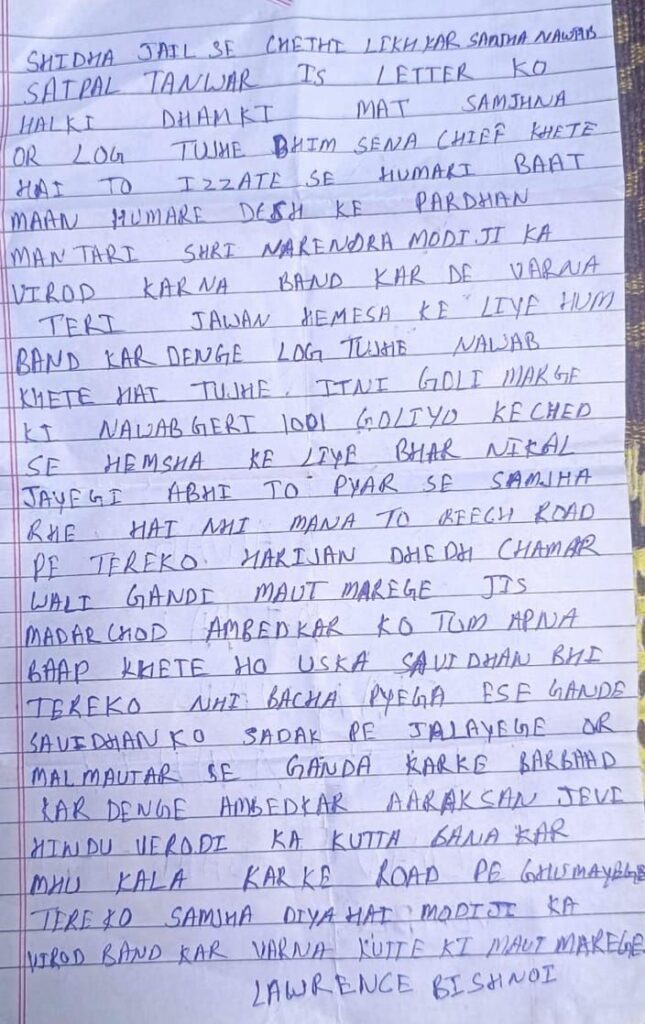 SHIDHA JAIL SE CHETHI LIKH KAR SAMJHA NAWAB
SATPAL TANWAR IS LETTER KO
HALKI DHAMKI MAT SAMJHNA
OR LOG TUJHE BHIM SENA CHIEF KHETE
HAI TO IZZATE SE HUMARI BAAT
MAAN HUMARE DESH KE PARDHAN
MANTARI SHRI NARENDRA MODI JI KA
VIROD KARNA BAND KAR DE VARNA
TERI JAWAN HEMESA KE LIYE HUM
BAND KAR DENGE LOG TUJHE NAWAB
KHETE HAI TUJHE ITNI GOLI MARGE
KI NAWABGERI 1001 GOLIYO KE CHED
SE HEMSHA KE LIYE BHAR NIKAL
JAYEGI ABHI TO PYAR SE SAMJHA
RHE HAI NHI MANA TO BEECH ROAD
PE TEREKO HARIJAN DHEDH CHAMAR
WALI GANDI MAUT MAREGE JIS
MADARCHOD AMBEDKAR KO TUM APNA
BAAP KHETE HO USKA SAVIDHAN BHI
TEREKO NHI BACHA PYEGA ESE GANDE
SAVIDHAN KO SADAK PE JALAYEGE OR
MALMAUTAR SE GANDA KARKE BARBAAD
KAR DENGE AMBEDKAR AARAKSAN JEVI
HINDU VERODI KA KUTTA BANA KAR
MHU KALA KAR KE ROAD PE GHUMAYEGE
TEREKO SAMJHA DIYA HAI MODI JI KA
VIROD BAND KAR VARNA KUTTE KI MAUT MAREGE
LAWRENCE BISHNOI